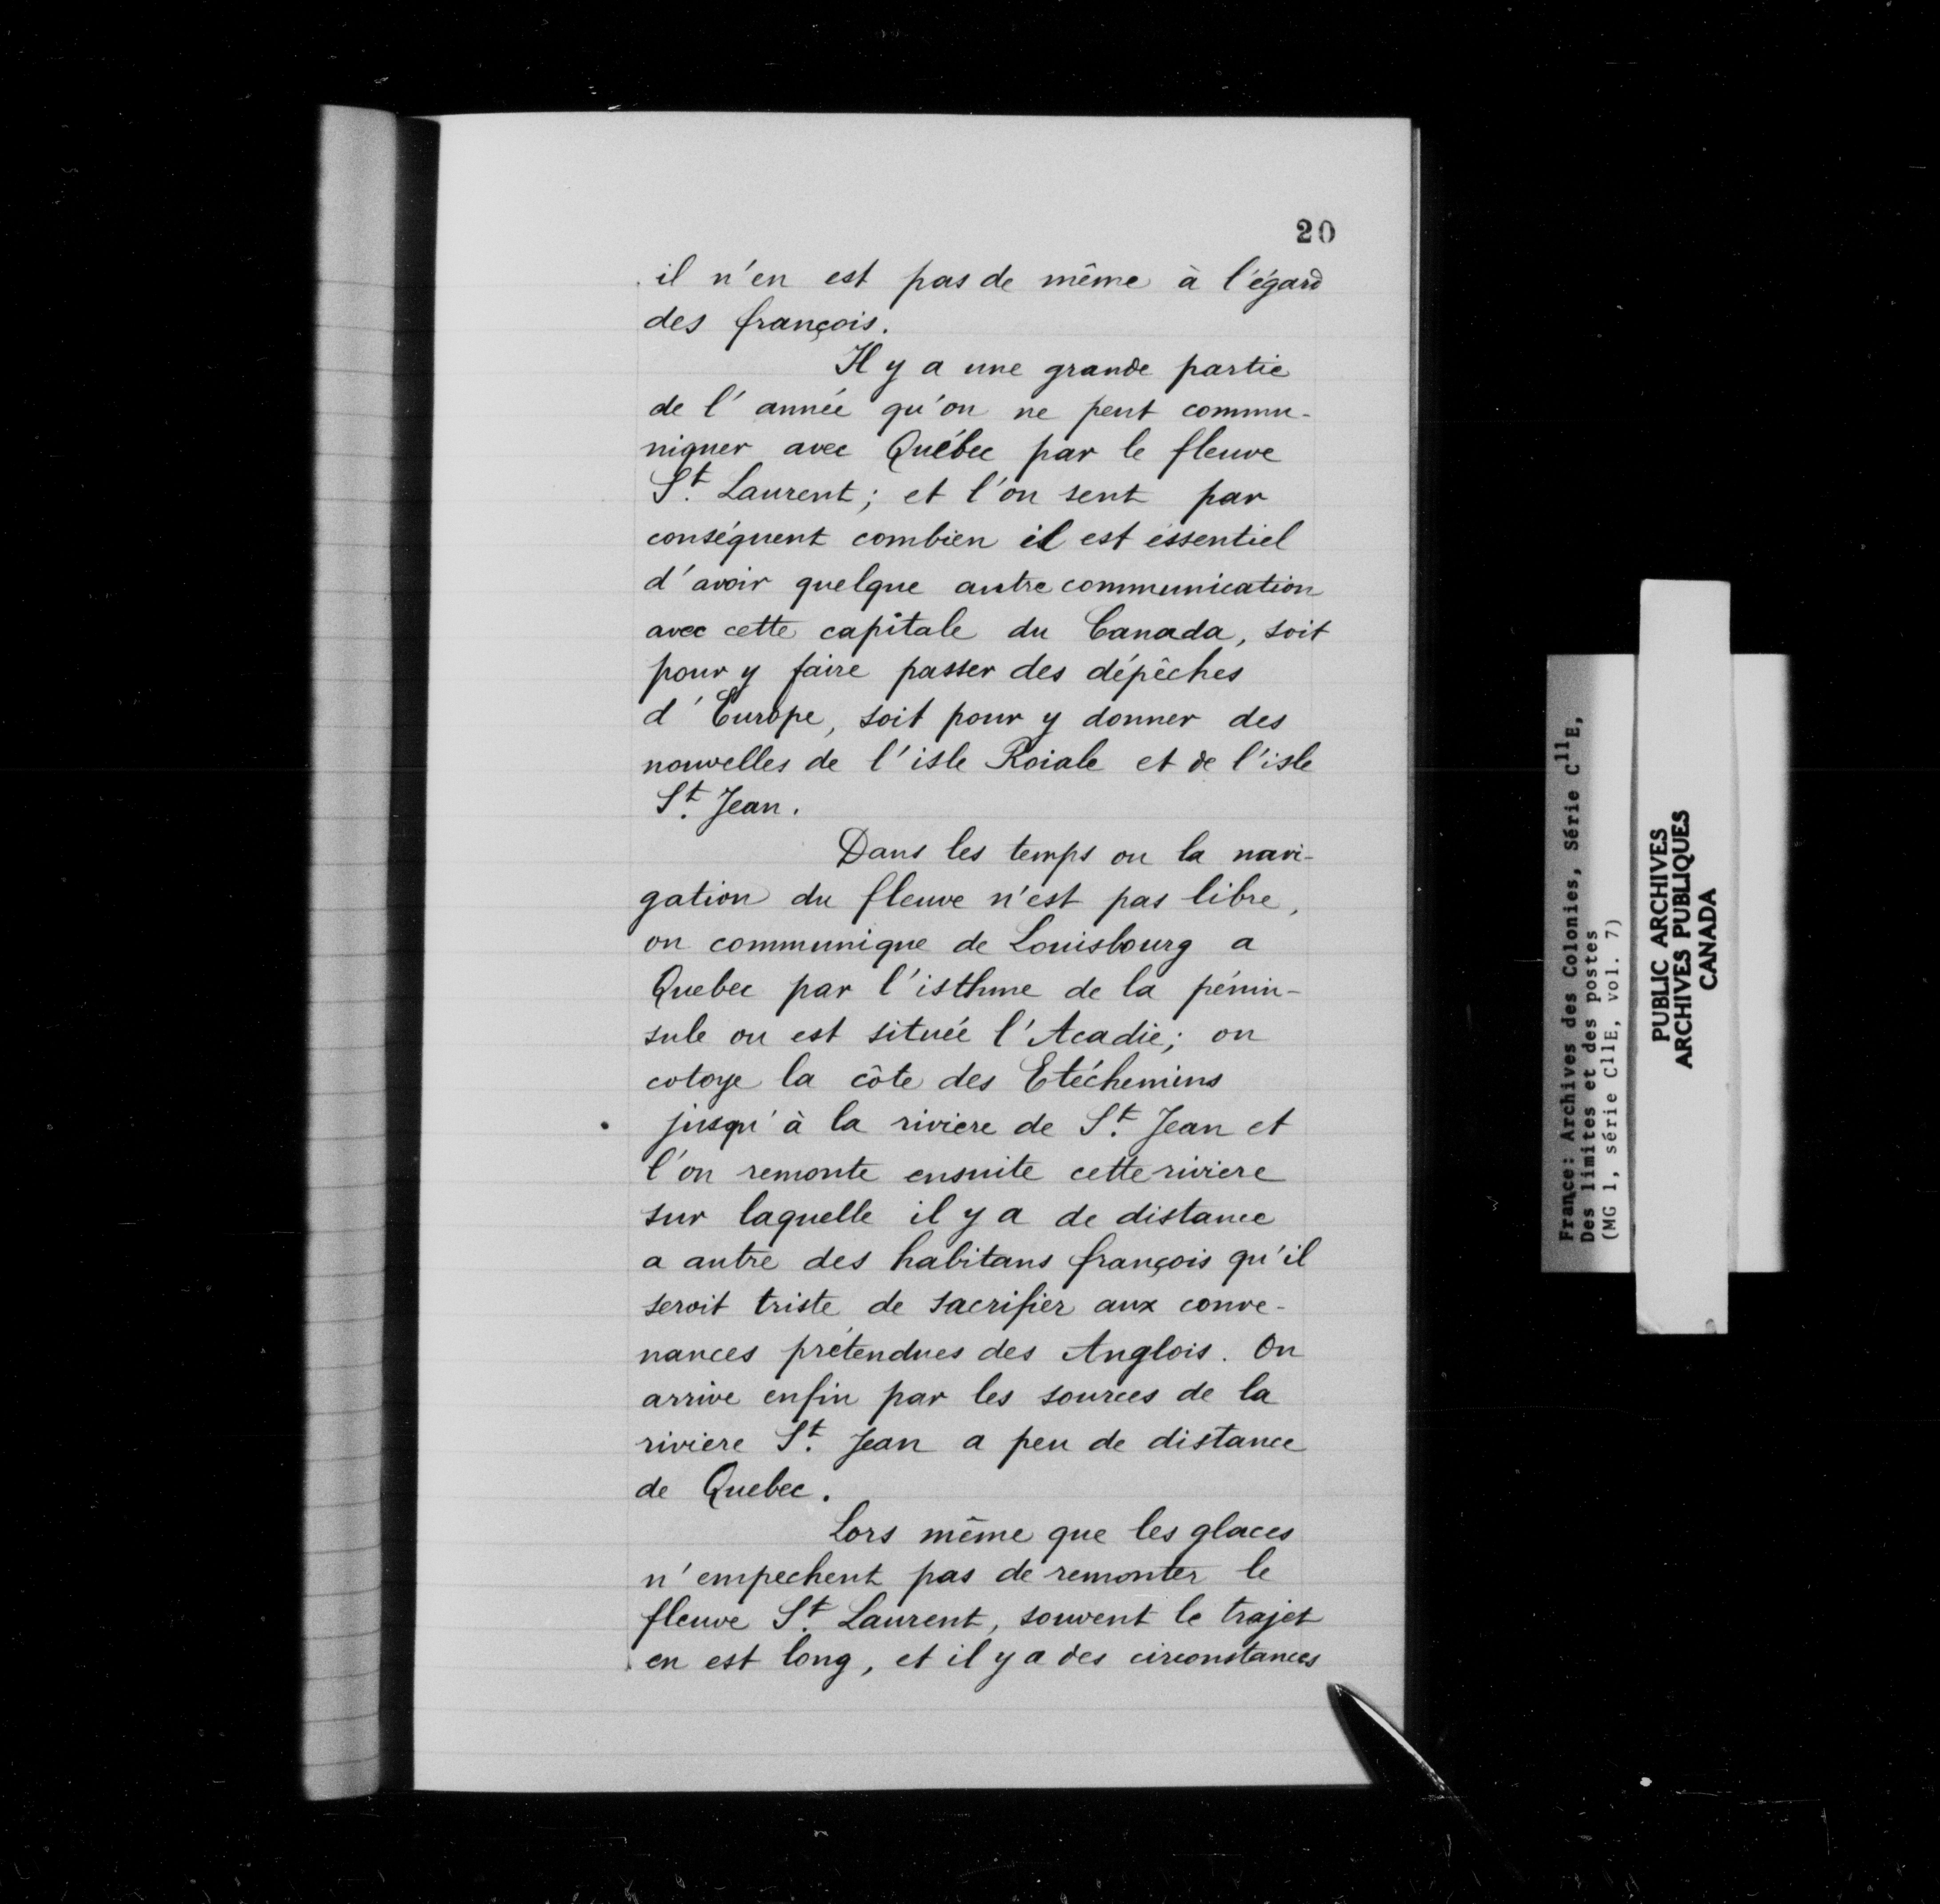 20
il n'en est pas de même à l'égard
des françois.
Il y a une grande partie
de l'année qu'on ne peut commu-
niquer avec Québec par le fleuve
St. Laurent; et l'on sent par
conséquent combien il est essentiel
d'avoir quelque autre communication
avec cette capitale du Canada, soit
pour y faire passer des dépêches
d'Europe, soit pour y donner des
nouvelles de l'isle Roiale et de l'isle
St. Jean.
Dans les temps ou la navi-
gation du fleuve n'est pas libre,
on communique de Louisbourg a
Quebec par l'isthme de la pénin-
sule ou est située l'Acadie; on
cotoye la côte des Etéchemins
jusqu'à la riviere de St. Jean et
l'on remonte ensuite cette riviere
sur laquelle il y a de distance
a autre des habitans françois qu'il
seroit triste de sacrifier aux conve-
nances prétendues des Anglois. On
arrive enfin par les sources de la
riviere St. Jean a peu de distance
de Quebec.
Lors même que les glaces
n'empechent pas de remonter le
fleuve St. Laurent, souvent le trajet
en est long, et il y a des circonstances
France: Archives des Colonies, Série C11E,
Des limites et des postes
(MG 1, série C11E, vol. 7)
PUBLIC ARCHIVES
ARCHIVES PUBLIQUES
CANADA